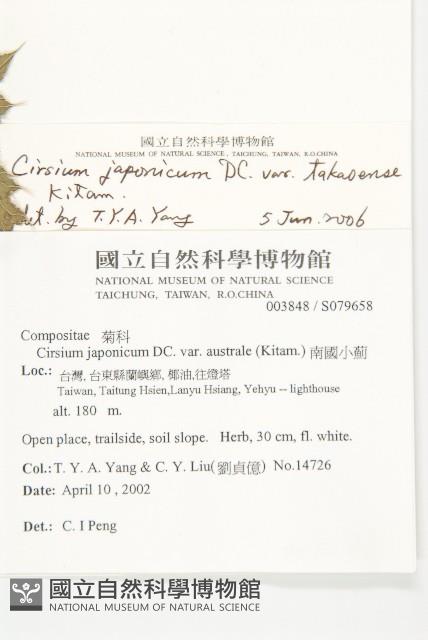 國立自然科學博物館
NATIONAL MUSEUM OF NATURAL SCIENCE, TAICHUNG, TAIWAN, R.O.CHINA
Cirsium japonicum DC. var. takaoense
Kitam.
det. by T.Y.A. Yang 5 Jun. 2006
國立自然科學博物館
NATIONAL MUSEUM OF NATURAL SCIENCE
TAICHUNG, TAIWAN, R.O.CHINA
003848 / S079658
Compositae 菊科
Cirsium japonicum DC. var. australe (Kitam.) 南國小薊
Loc.: 台灣, 台東縣蘭嶼鄉, 椰油,往燈塔
Taiwan, Taitung Hsien,Lanyu Hsiang, Yehyu -- lighthouse
alt. 180 m.
Open place, trailside, soil slope. Herb, 30 cm, fl. white.
Col.: T. Y. A. Yang & C. Y. Liu(劉貞億) No.14726
Date: April 10 , 2002
Det.: C. I Peng
國立自然科學博物館
NATIONAL MUSEUM OF NATURAL SCIENCE